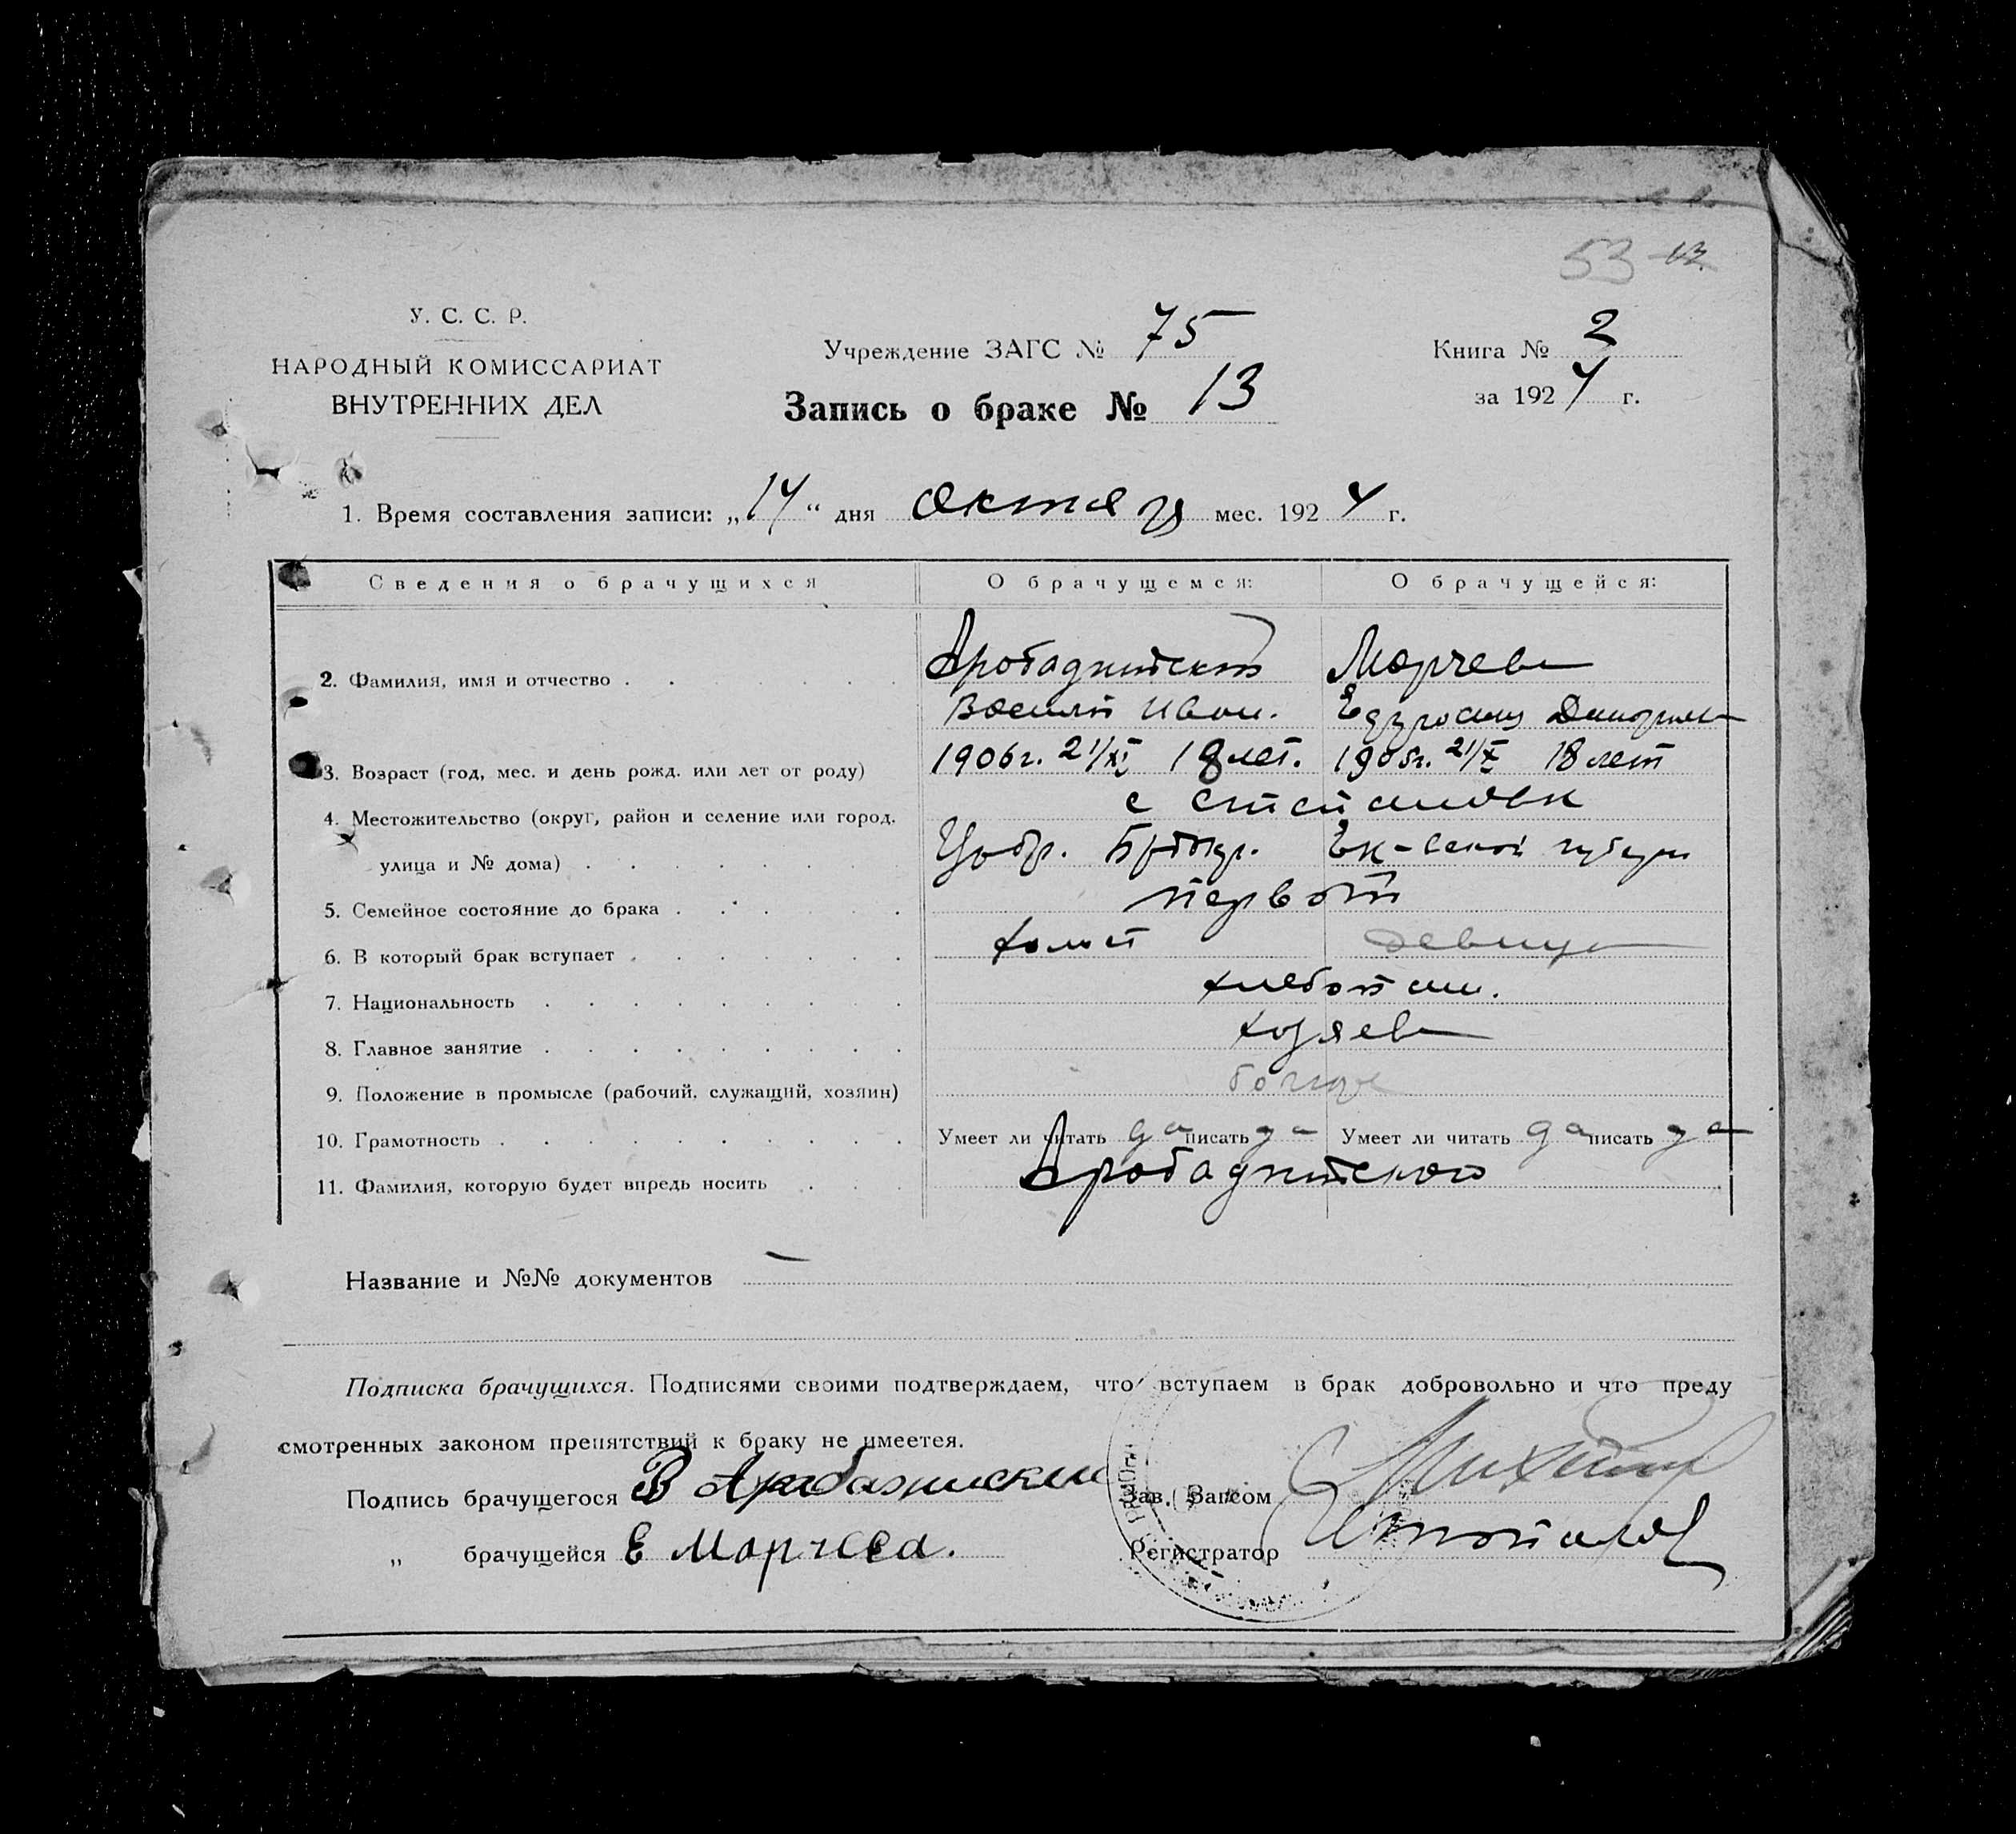 53
У. С. С. Р.
НАРОДНЫЙ КОМИССАРИАТ
ВНУТРЕННИХ ДЕЛ
Учреждение ЗАГС № 75
Запись о браке № 13
Книга № 2
за 1924 г.
1. Время составления записи: „14“ дня октя мес. 1924 г.
Сведения о брачущихся О брачущемся: О брачущейся:
2. Фамилия, имя и отчество Марчева
Василий Иван.
3. Возраст (год, мес. и день рожд. или лет от роду) 1906г. 21/XI 18 лет. 21/X 18 лет
4. Местожительство (округ, район и селение или город. с
улица и № дома) губерн
5. Семейное состояние до брака первый
6. В который брак вступает холост девица
7. Национальность
8. Главное занятие хозяева
9. Положение в промысле (рабочий, служащий, хозяин)
10. Грамотность Умеет ли читать да писать да Умеет ли читать да писать да
11. Фамилия, которую будет впредь носить
Название и №№ документов —
Подписка брачущихся. Подписями своими подтверждаем, что вступаем в брак добровольно и что преду
смотренных законом препятствий к браку не имеетея.
Подпись брачущегося В Зав. Загсом
„ брачущейся Е Марчева. Регистратор